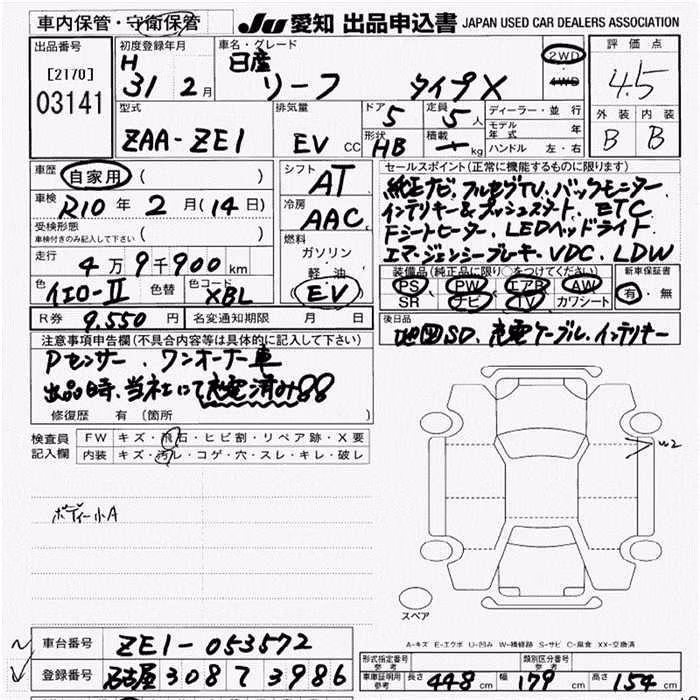 車内保管・守衛保管 JU 愛知 出品申込書 JAPAN USED CAR DEALERS ASSOCIATION
出品番号 [2170] 03141
初度登録年月 H 31 2月
車名・グレード 日産 リーフ タイプX
2WD・4WD
評価点 4.5
外装 内装
B B
型式 ZAA-ZE1
排気量 EV CC
ドア 5 定員 5人
形状 HB 積載 - kg
ディーラー・並行
モデル年式 年
ハンドル 左・右
車歴 自家用 ( )
車検 R10年 2月(14日)
受検形態
車検付きのみ記入して下さい ( )
走行 4万9千900km
色 イエロー-II 色替 色コード XBL
シフト AT
冷房 AAC
燃料
ガソリン・軽・油
EV
セールスポイント(正常に機能するものに限ります)
純正ナビ、フルセグTV、バックモニター、
インテリキー&プッシュスタート、ETC
Fシートヒーター、LEDヘッドライト
エマージェンシーブレーキ・VDC、LDW
装備品(純正品に限り○をつけてください) 新車保証書
PS PW エアB AW 有・無
SR ナビ TV カワシート
R券 9,550円 名変通知期限 月 日
後日品
地図SD、充電ケーブル、インテリキー
注意事項申告欄(不具合内容等は具体的に記入して下さい)
Pセンサー、ワンオーナー車
出品時、当社にて充電済み
修復歴 有(箇所 )
検査員記入欄 FW キズ・飛石・ヒビ割・リペア跡・X要
内装 キズ・汚レ・コゲ・穴・スレ・キレ・破レ
W2
ボディー小A
スペア
A-キズ E-エクボ U-凹み W-補修跡 S-サビ C-腐食 XX-交換済
車台番号 ZE1-053572
登録番号 名古屋 308 ア 3986
型式指定番号 参考 類別区分番号 参考
車庫証明用参考 長さ 448cm 幅 179cm 高さ 154cm